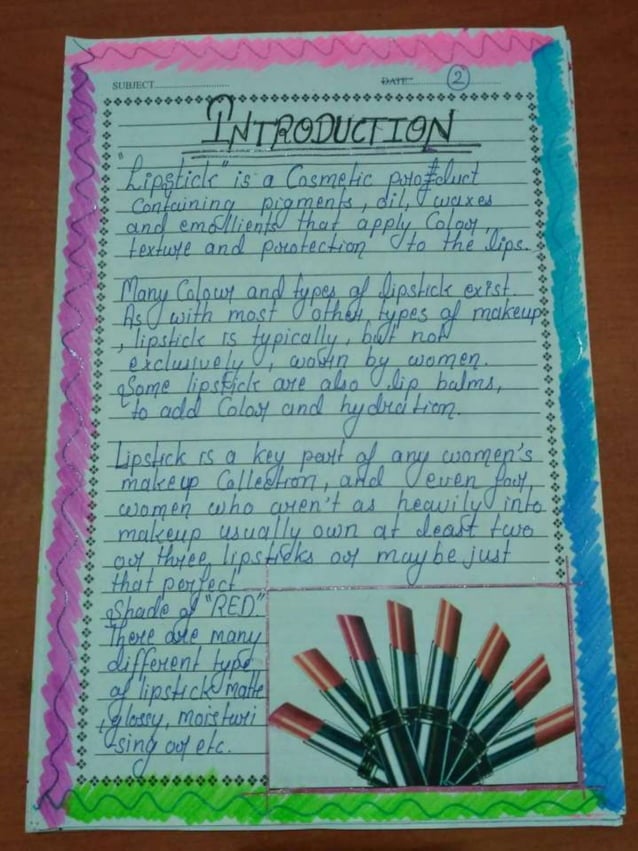 SUBJECT
DATE
2
INTRODUCTION
"Lipstick" is a Cosmetic product
containing pigments, oil, waxes
and emollients that apply Color,
texture and protection to the lips.
Many Colour and types of lipstick exist.
As with most other types of makeup
, lipstick is typically, but not
exclusively, worn by women.
Some lipstick are also lip balms,
to add Color and hydration.
Lipstick is a key part of any women's
makeup Collection, and even for
women who aren't as heavily into
makeup usually own at least two
or three lipsticks or maybe just
that perfect
Shade of "RED."
There are many
different type
of lipstick matte
, glossy, moisturi
-sing or etc.